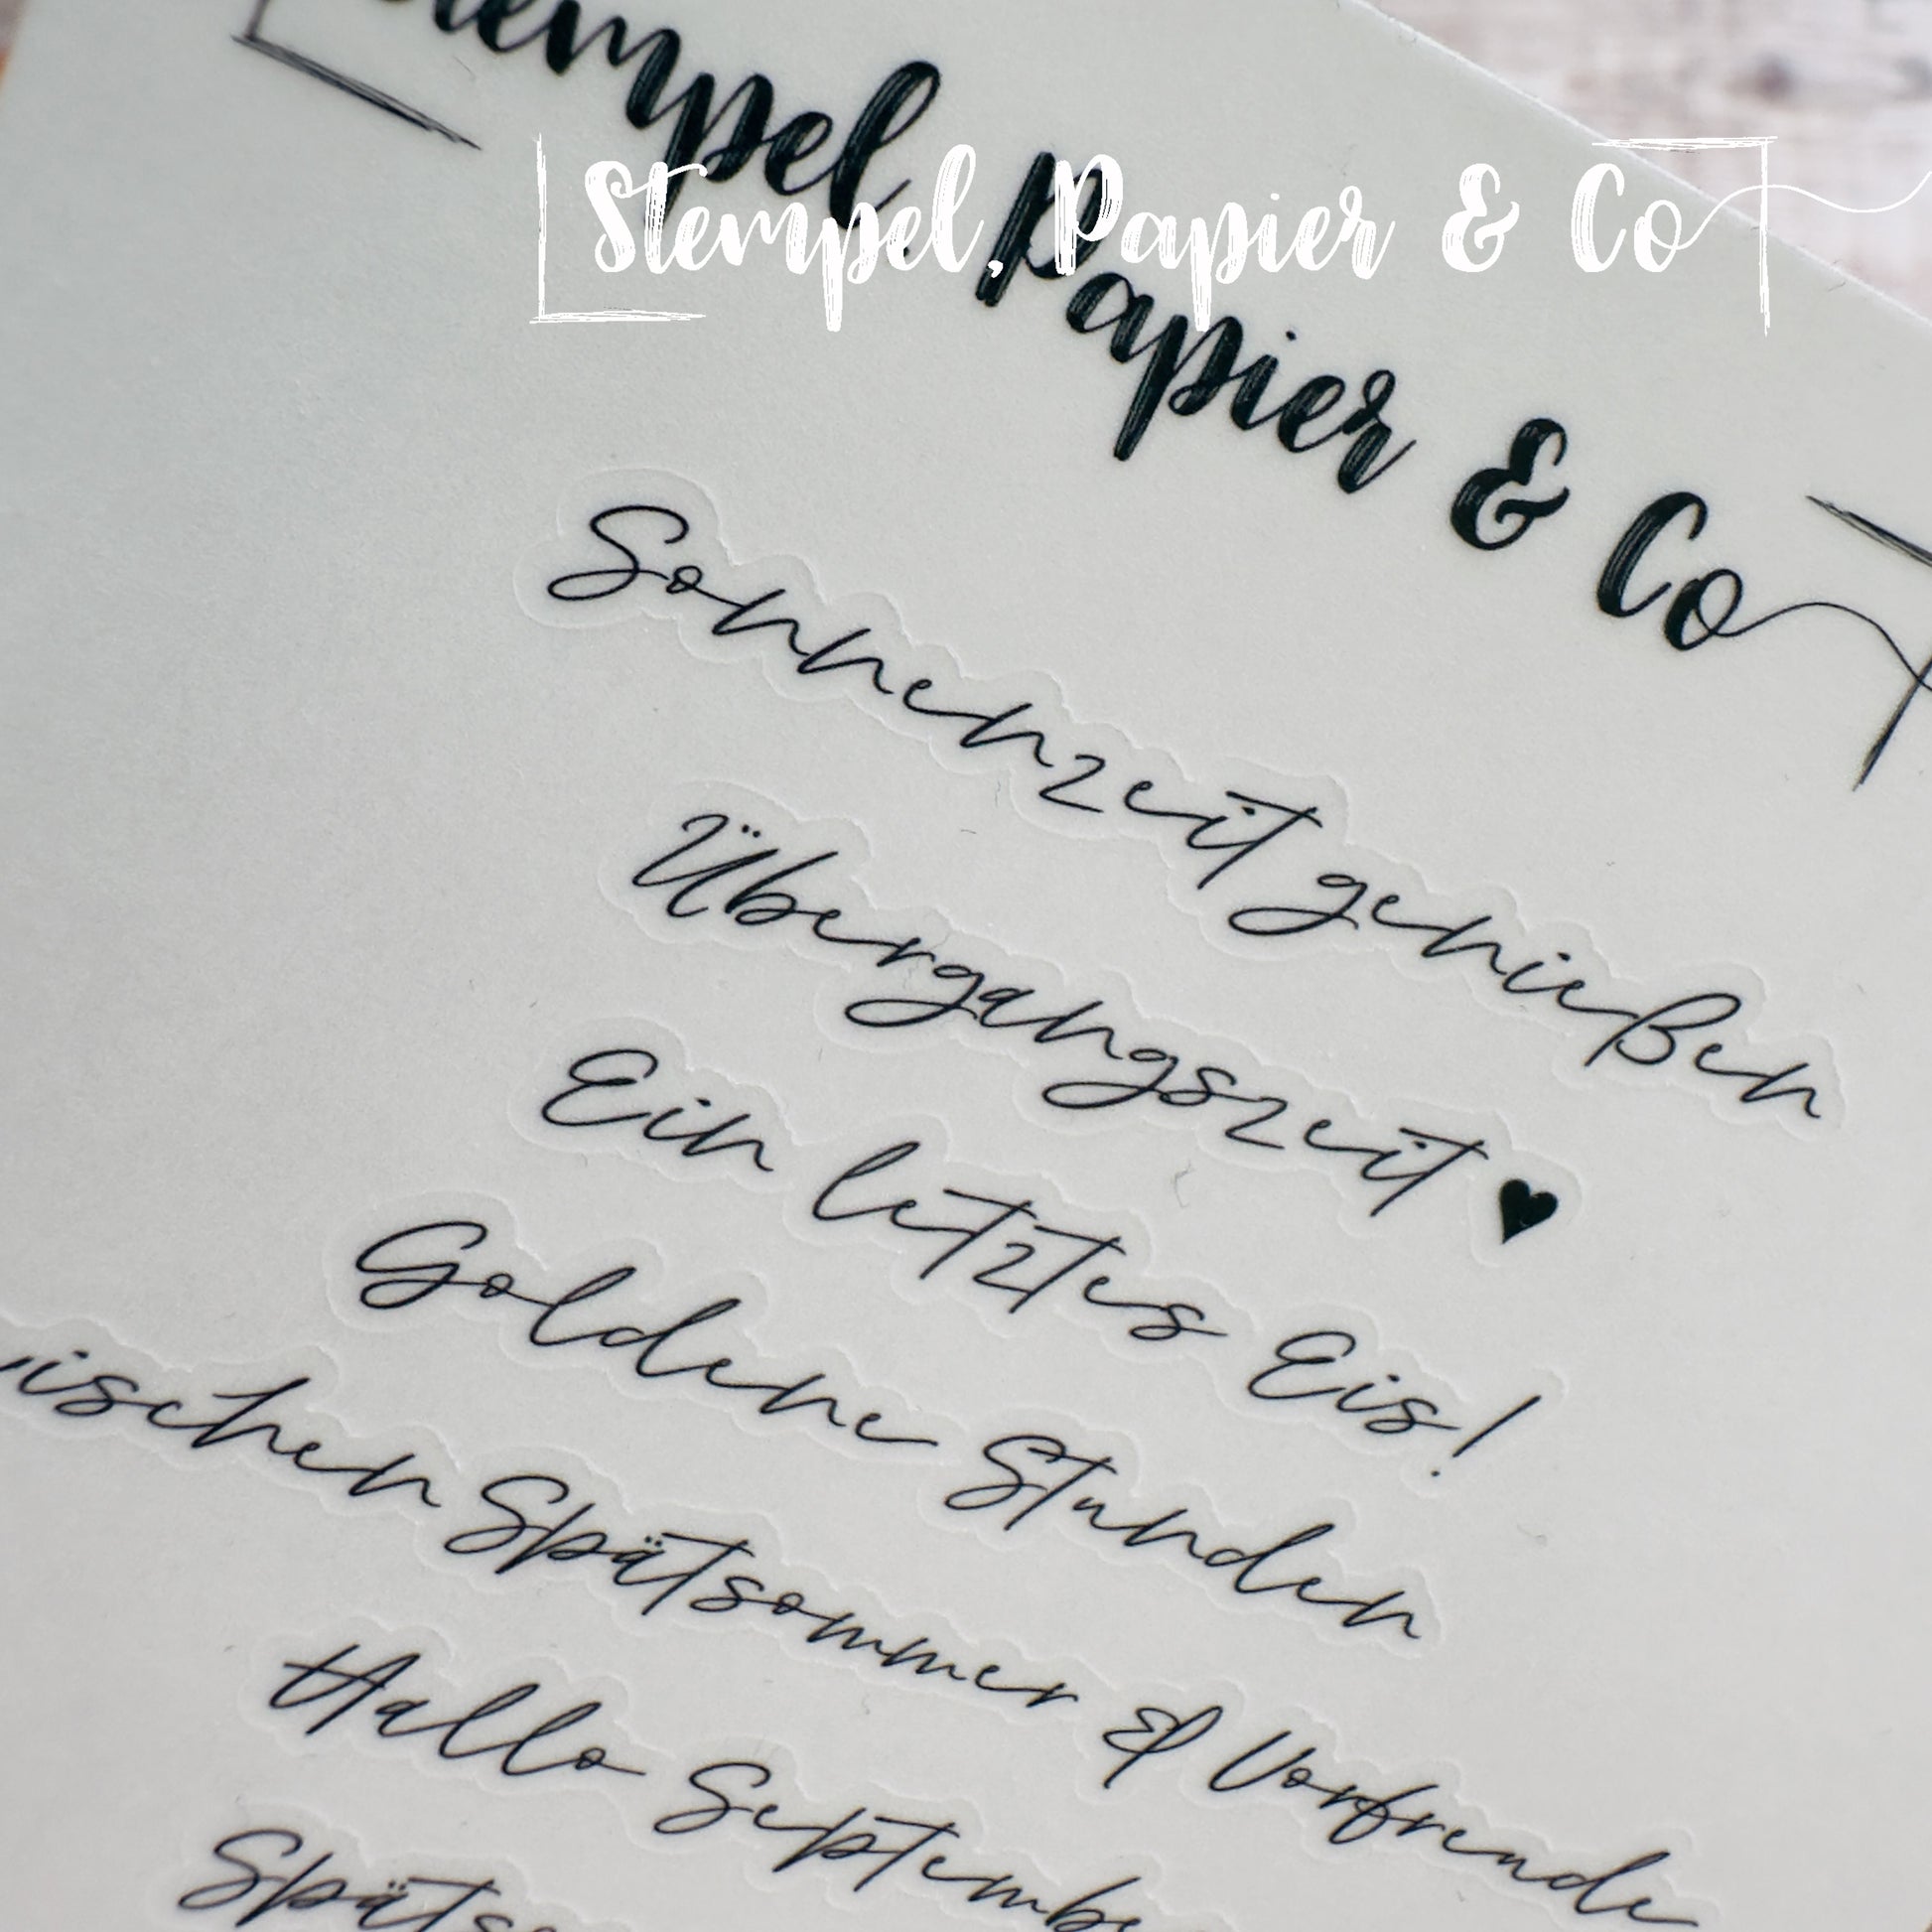 Stempel, Papier & Co
Papier & Co
Sonnenzeit genießen
Übergangszeit ♥
Ein letztes Eis!
Goldene Stunden
Spätsommer & Vorfreude
Hallo